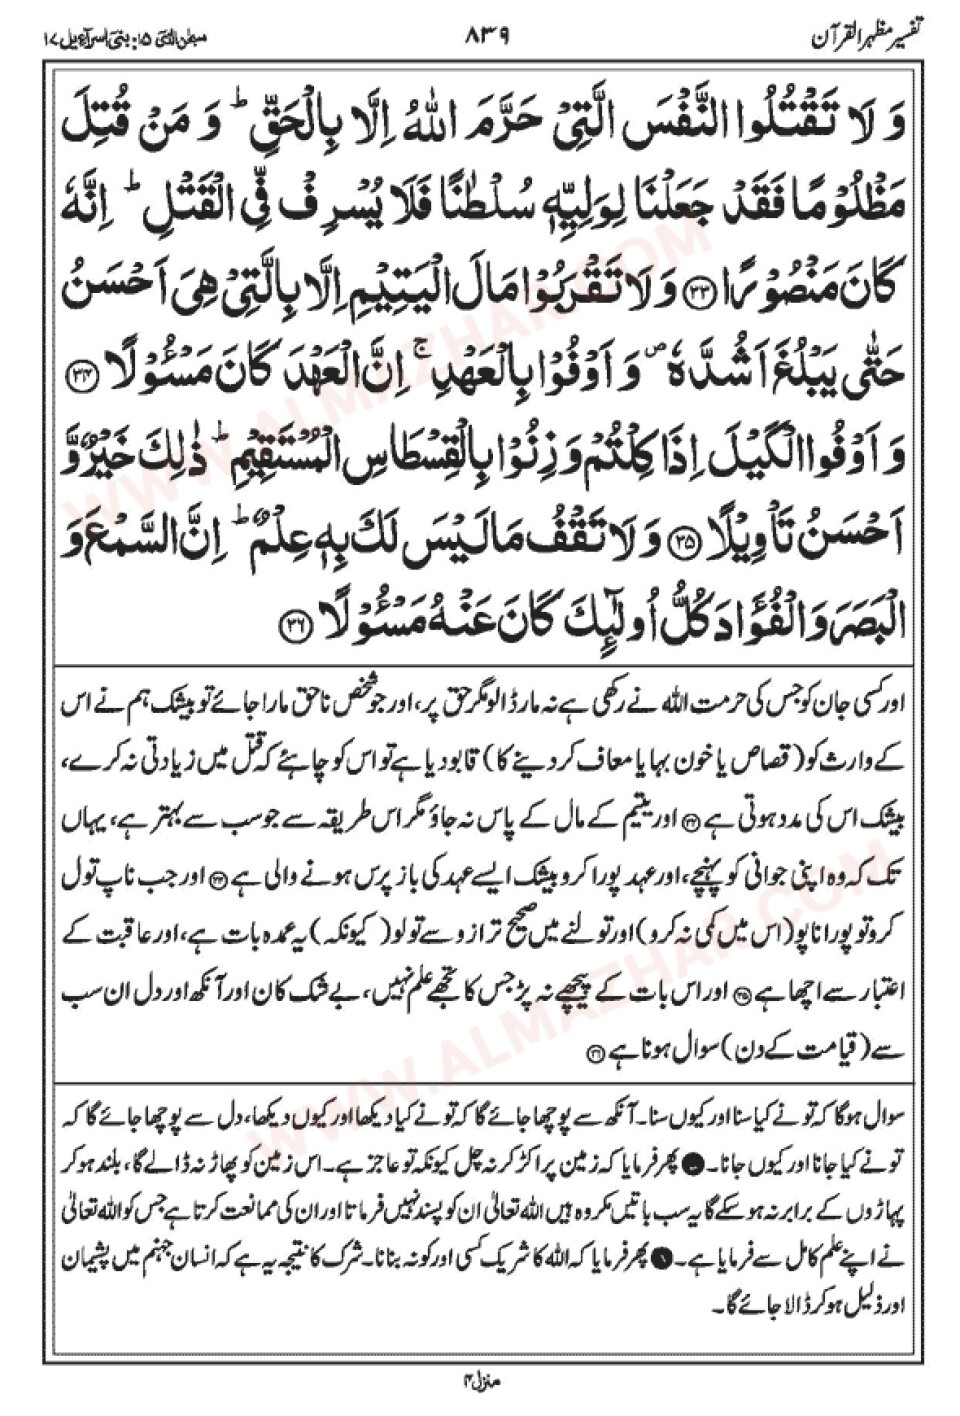 تفسیر مظہر القرآن
۸۳۹
سبحٰن الذی ۱۵: بنی اسرآءیل ۱۷
وَ لَا تَقْتُلُوا النَّفْسَ الَّتِیْ حَرَّمَ اللّٰهُ اِلَّا بِالْحَقِّ ؕ وَ مَنْ قُتِلَ
مَظْلُوْمًا فَقَدْ جَعَلْنَا لِوَلِیِّهٖ سُلْطٰنًا فَلَا یُسْرِفْ فِّی الْقَتْلِ ؕ اِنَّهٗ
كَانَ مَنْصُوْرًا ۳۳ وَ لَا تَقْرَبُوْا مَالَ الْیَتِیْمِ اِلَّا بِالَّتِیْ هِیَ اَحْسَنُ
حَتّٰی یَبْلُغَ اَشُدَّهٗ ۪ وَ اَوْفُوْا بِالْعَهْدِ ۚ اِنَّ الْعَهْدَ كَانَ مَسْـُٔوْلًا ۳۴
وَ اَوْفُوا الْكَیْلَ اِذَا كِلْتُمْ وَ زِنُوْا بِالْقِسْطَاسِ الْمُسْتَقِیْمِ ؕ ذٰلِكَ خَیْرٌ وَّ
اَحْسَنُ تَاْوِیْلًا ۳۵ وَ لَا تَقْفُ مَا لَیْسَ لَكَ بِهٖ عِلْمٌ ؕ اِنَّ السَّمْعَ وَ
الْبَصَرَ وَ الْفُؤَادَ كُلُّ اُولٰٓئِكَ كَانَ عَنْهُ مَسْـُٔوْلًا ۳۶
اور کسی جان کو جس کی حرمت اللہ نے رکھی ہے نہ مار ڈالو مگر حق پر، اور جو شخص ناحق مارا جائے تو بیشک ہم نے اس
کے وارث کو (قصاص یا خون بہا یا معاف کر دینے کا) قابو دیا ہے تو اس کو چاہئے کہ قتل میں زیادتی نہ کرے،
بیشک اس کی مدد ہوتی ہے ۳۳ اور یتیم کے مال کے پاس نہ جاؤ مگر اس طریقہ سے جو سب سے بہتر ہے، یہاں
تک کہ وہ اپنی جوانی کو پہنچے، اور عہد پورا کرو بیشک ایسے عہد کی باز پرس ہونے والی ہے ۳۴ اور جب ناپ تول
کرو تو پورا ناپو (اس میں کمی نہ کرو) اور تولنے میں صحیح ترازو سے تولو (کیونکہ) یہ عمدہ بات ہے، اور عاقبت کے
اعتبار سے اچھا ہے ۳۵ اور اس بات کے پیچھے نہ پڑ جس کا تجھے علم نہیں، بے شک کان اور آنکھ اور دل ان سب
سے (قیامت کے دن) سوال ہونا ہے ۳۶
سوال ہوگا کہ تو نے کیا سنا اور کیوں سنا۔ آنکھ سے پوچھا جائے گا کہ تو نے کیا دیکھا اور کیوں دیکھا، دل سے پوچھا جائے گا کہ
تو نے کیا جانا اور کیوں جانا۔ پھر فرمایا کہ زمین پر اکڑ کر نہ چل کیونکہ تو عاجز ہے۔ اس زمین کو پھاڑ نہ ڈالے گا، بلند ہو کر
پہاڑوں کے برابر نہ ہو سکے گا یہ سب باتیں مکروہ ہیں اللہ تعالیٰ ان کو پسند نہیں فرماتا اور ان کی ممانعت کرتا ہے جس کو اللہ تعالیٰ
نے اپنے علم کامل سے فرمایا ہے۔ پھر فرمایا کہ اللہ کا شریک کسی اور کو نہ بنانا۔ شرک کا نتیجہ یہ ہے کہ انسان جہنم میں پشیمان
اور ذلیل ہو کر ڈالا جائے گا۔
منزل ۴
WWW.ALMAZHAR.COM
WWW.ALMAZHAR.COM